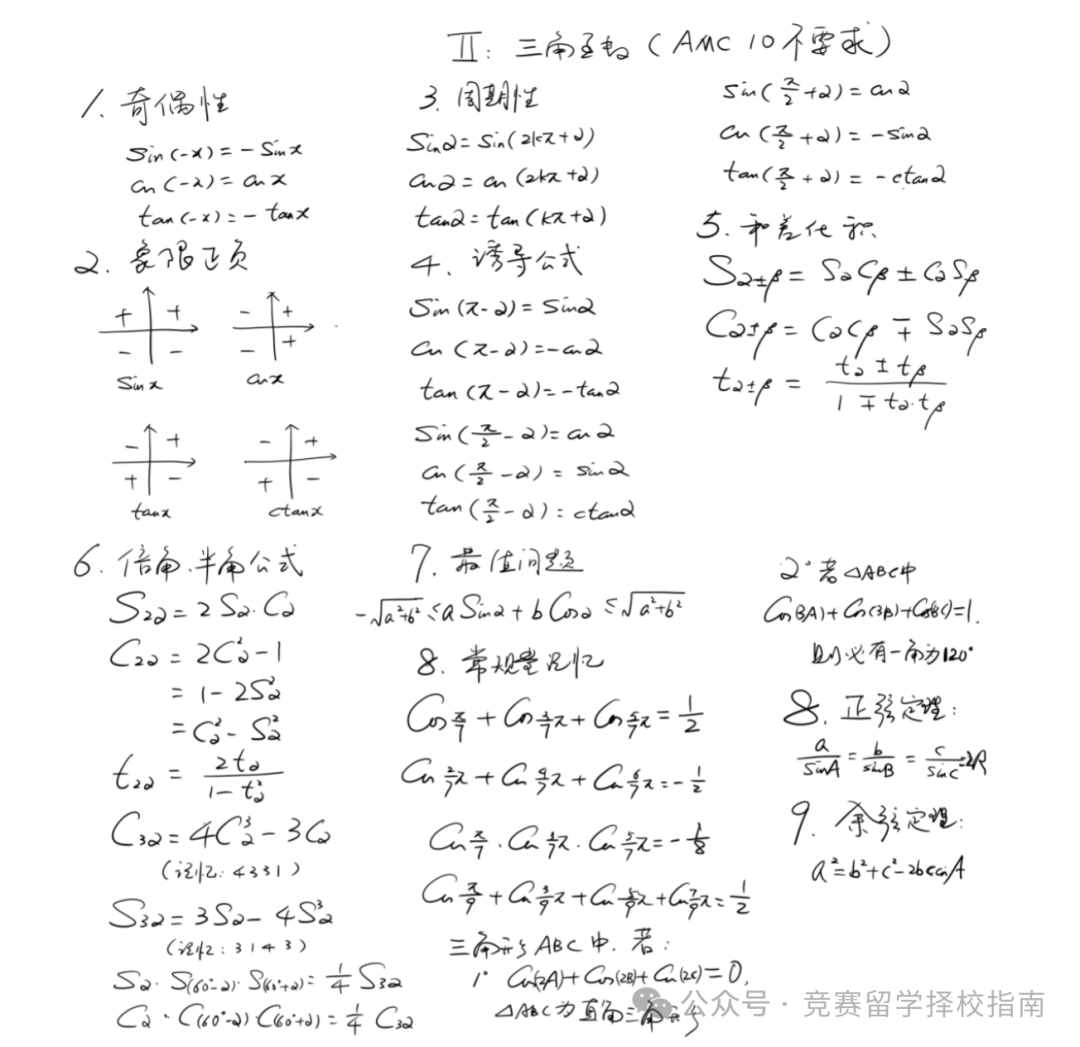 II: 三角函数 (AMC 10不要求)
1. 奇偶性
sin(-x) = -sinx
cos(-x) = cosx
tan(-x) = -tanx
2. 象限正负
+ +
- -
sinx
- +
- +
cosx
- +
+ -
tanx
- +
+ -
ctanx
3. 周期性
sinα = sin(2kπ+α)
cosα = cos(2kπ+α)
tanα = tan(kπ+α)
4. 诱导公式
sin(π-α) = sinα
cos(π-α) = -cosα
tan(π-α) = -tanα
sin(π/2-α) = cosα
cos(π/2-α) = sinα
tan(π/2-α) = ctanα
sin(π/2+α) = cosα
cos(π/2+α) = -sinα
tan(π/2+α) = -ctanα
5. 和差化积
Sα±β = SαCβ ± CαSβ
Cα±β = CαCβ ∓ SαSβ
tα±β = (tα ± tβ)/(1 ∓ tα·tβ)
6. 倍角.半角公式
S2α = 2Sα·Cα
C2α = 2Cα² - 1
= 1 - 2Sα²
= Cα² - Sα²
t2α = 2tα/(1-tα²)
C3α = 4Cα³ - 3Cα
(记忆: 4331)
S3α = 3Sα - 4Sα³
(记忆: 3143)
Sα·S(60°-α)·S(60°+α) = 1/4 S3α
Cα·C(60°-α)C(60°+α) = 1/4 C3α
7. 最值问题
-√(a²+b²) ≤ aSinα + bCosα ≤ √(a²+b²)
8. 常规量记忆
Cos π/7 + Cos 3/7π + Cos 5/7π = 1/2
Cos 2/7π + Cos 4/7π + Cos 6/7π = -1/2
Cos π/7 · Cos 3/7π · Cos 5/7π = -1/8
Cos π/9 + Cos 3/9π + Cos 5/9π + Cos 7/9π = 1/2
三角形ABC中.若:
1° Cos(2A)+Cos(2B)+Cos(2C)=0,
△ABC为直角三角形
2° 若△ABC中
Cos(3A)+Cos(3B)+Cos(3C)=1,
则必有一角为120°
8. 正弦定理:
a/sinA = b/sinB = c/sinC = 2R
9. 余弦定理:
a² = b²+c²-2bccosA
公众号 · 竞赛留学择校指南